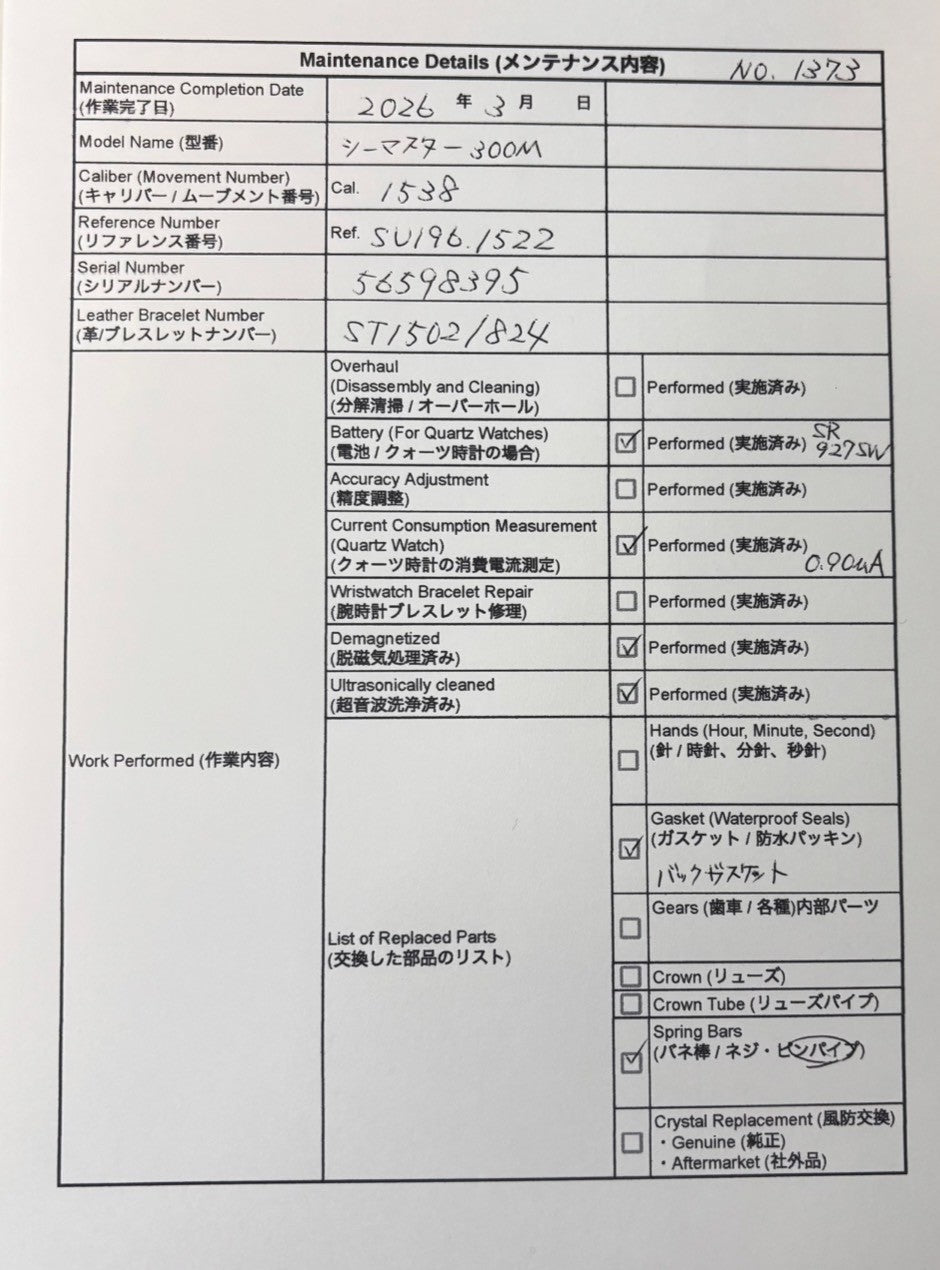 Maintenance Details (メンテナンス内容) NO. 1373
Maintenance Completion Date
(作業完了日)
2026 年 3 月 日
Model Name (型番)
シーマスター 300M
Caliber (Movement Number)
(キャリバー / ムーブメント番号)
Cal. 1538
Reference Number
(リファレンス番号)
Ref. SU196.1522
Serial Number
(シリアルナンバー)
56598395
Leather Bracelet Number
(革/ブレスレットナンバー)
ST1502/824
Work Performed (作業内容)
Overhaul
(Disassembly and Cleaning)
(分解清掃 / オーバーホール)
Performed (実施済み)
Battery (For Quartz Watches)
(電池 / クォーツ時計の場合)
Performed (実施済み) SR
927SW
Accuracy Adjustment
(精度調整)
Performed (実施済み)
Current Consumption Measurement
(Quartz Watch)
(クォーツ時計の消費電流測定)
Performed (実施済み)
0.90uA
Wristwatch Bracelet Repair
(腕時計ブレスレット修理)
Performed (実施済み)
Demagnetized
(脱磁気処理済み)
Performed (実施済み)
Ultrasonically cleaned
(超音波洗浄済み)
Performed (実施済み)
List of Replaced Parts
(交換した部品のリスト)
Hands (Hour, Minute, Second)
(針 / 時針、分針、秒針)
Gasket (Waterproof Seals)
(ガスケット / 防水パッキン)
バックガスケット
Gears (歯車 / 各種)内部パーツ
Crown (リューズ)
Crown Tube (リューズパイプ)
Spring Bars
(バネ棒 / ネジ・ピンパイプ)
Crystal Replacement (風防交換)
・Genuine (純正)
・Aftermarket (社外品)